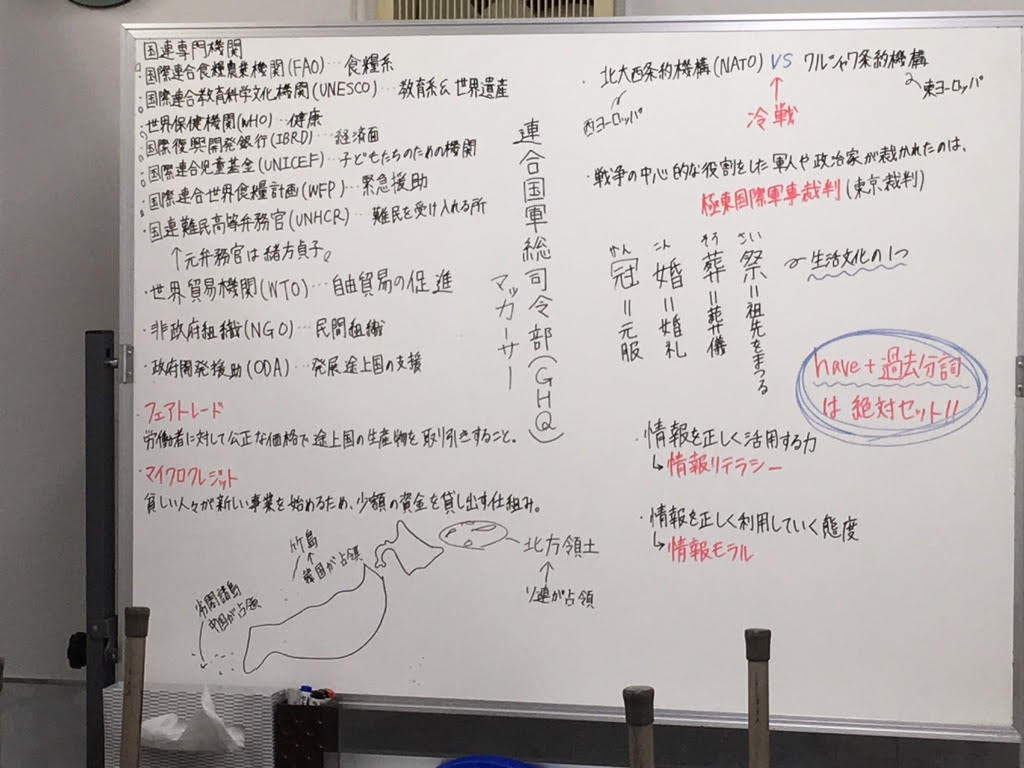 国連専門機関
・国際連合食糧農業機関(FAO)…食糧系
・国際連合教育科学文化機関(UNESCO)…教育系& 世界遺産
・世界保健機関(WHO)…健康
・国際復興開発銀行(IBRD)…経済面
・国際連合児童基金(UNICEF)…子どもたちのための機関
・国際連合世界食糧計画(WFP)…緊急援助
・国連難民高等弁務官(UNHCR)…難民を受け入れる所
↑元弁務官は緒方貞子。
・世界貿易機関(WTO)…自由貿易の促進
・非政府組織(NGO)…民間組織
・政府開発援助(ODA)…発展途上国の支援
・フェアトレード
労働者に対して公正な価格で途上国の生産物を取り引きすること。
・マイクロクレジット
貧しい人々が新しい事業を始めるため、少額の資金を貸し出す仕組み。
竹島
↑
韓国が占領
尖閣諸島
中国が占領
北方領土
↑
ソ連が占領
連合国軍総司令部(GHQ)
マッカーサー
・北大西条約機構(NATO) VS ワルシャワ条約機構
西ヨーロッパ
↑
冷戦
東ヨーロッパ
・戦争の中心的な役割をした軍人や政治家が裁かれたのは、
極東国際軍事裁判(東京裁判)
かん
冠=元服
こん
婚=婚礼
そう
葬=葬儀
さい
祭=祖先をまつる
生活文化の1つ
have+過去分詞
は 絶対セット!!
・情報を正しく活用する力
↳情報リテラシー
・情報を正しく利用していく態度
↳情報モラル